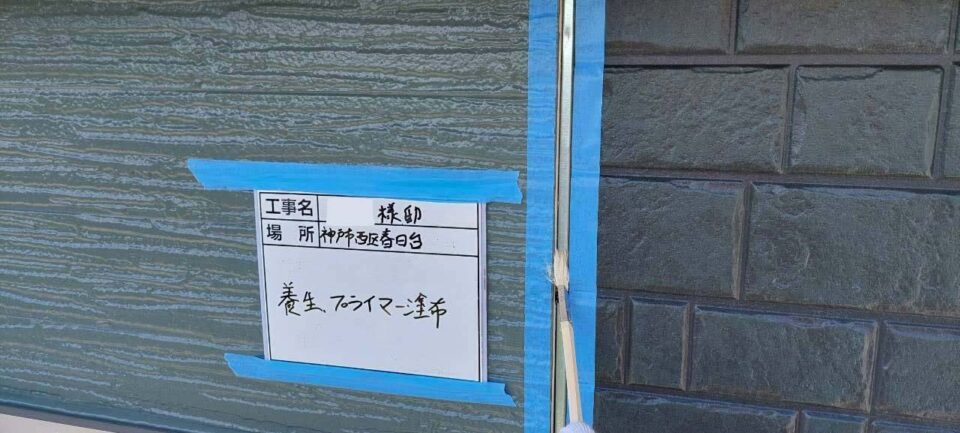 工事名 様邸
場所 神戸市西区春日台
養生、プライマー塗布